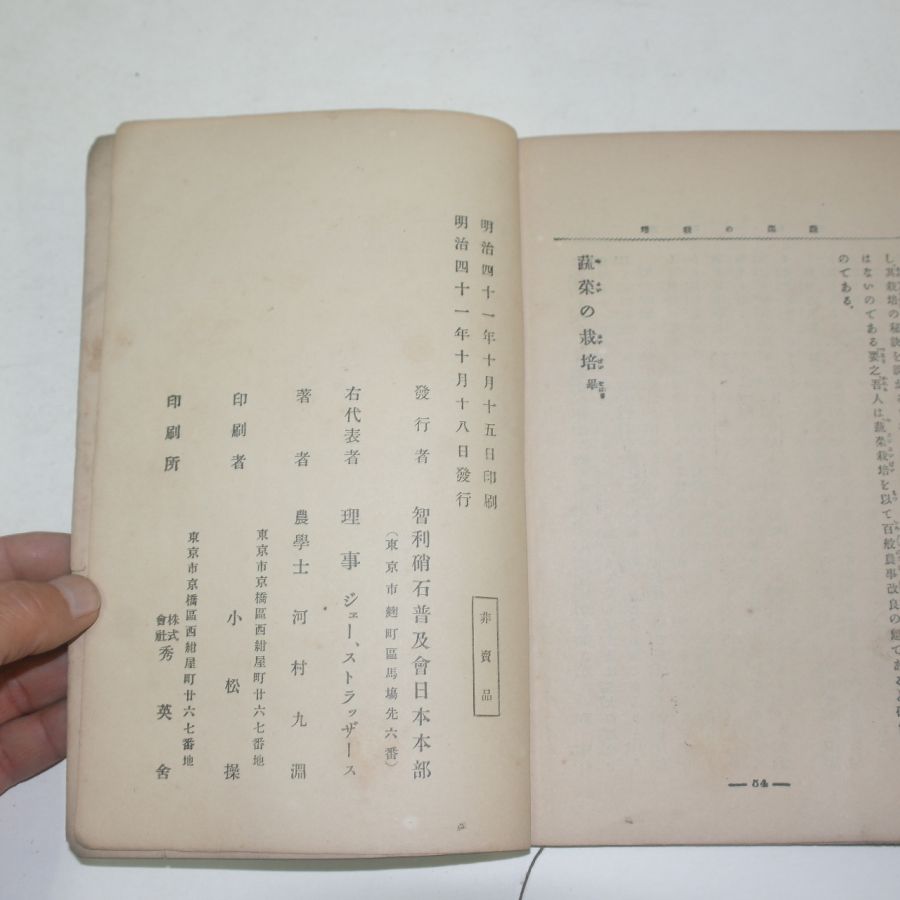 蔬菜の栽培
し、其栽培の秘訣を
はないのである要之吾人は、蔬菜栽培を以て百般農事改良の
のである。
蔬菜の栽培畢
— 54 —
明治四十一年十月十五日印刷
明治四十一年十月十八日發行
非賣品
發行者 智利硝石普及會日本本部
(東京市麴町區馬場先六番)
右代表者 理事 ジェー、ストラッザース
著者 農學士 河村九淵
東京市京橋區西紺屋町廿六七番地
印刷者 小松操
東京市京橋區西紺屋町廿六七番地
印刷所 株式會社 秀英舍